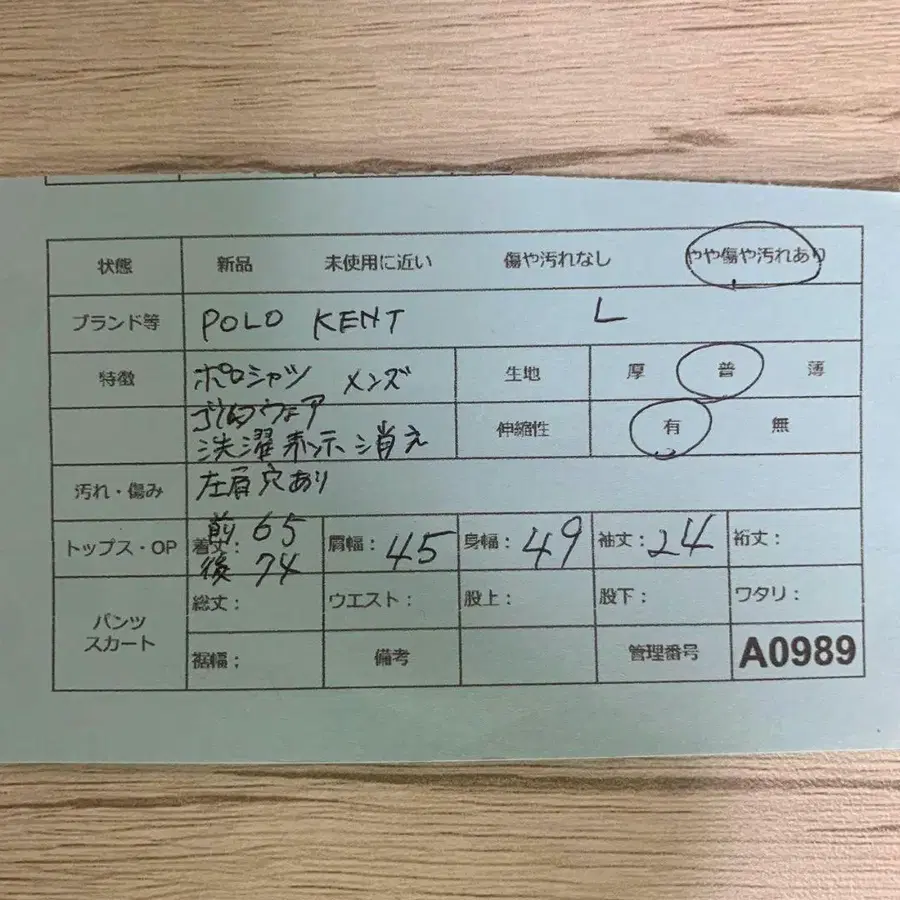 状態 新品 未使用に近い 傷や汚れなし やや傷や汚れあり
ブランド等 POLO KENT L
特徴 ポロシャツ メンズ 生地 厚 普 薄
ゴルフウェア
洗濯表示消え 伸縮性 有 無
汚れ・傷み 左肩穴あり
トップス・OP 着丈: 前 65 後 74 肩幅: 45 身幅: 49 袖丈: 24 裄丈:
パンツ スカート 総丈: ウエスト: 股上: 股下: ワタリ:
裾幅; 備考 管理番号 A0989